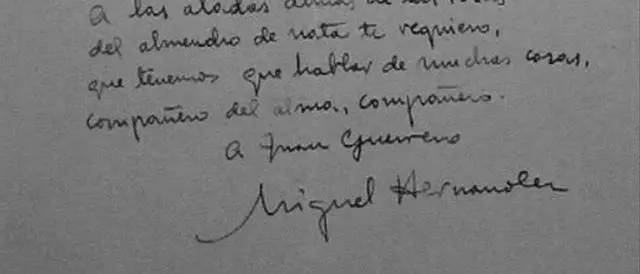 A las aladas almas de las rosas
del almendro de nata te requiero,
que tenemos que hablar de muchas cosas,
compañero del alma, compañero.
A Juan Guerrero
Miguel Hernández